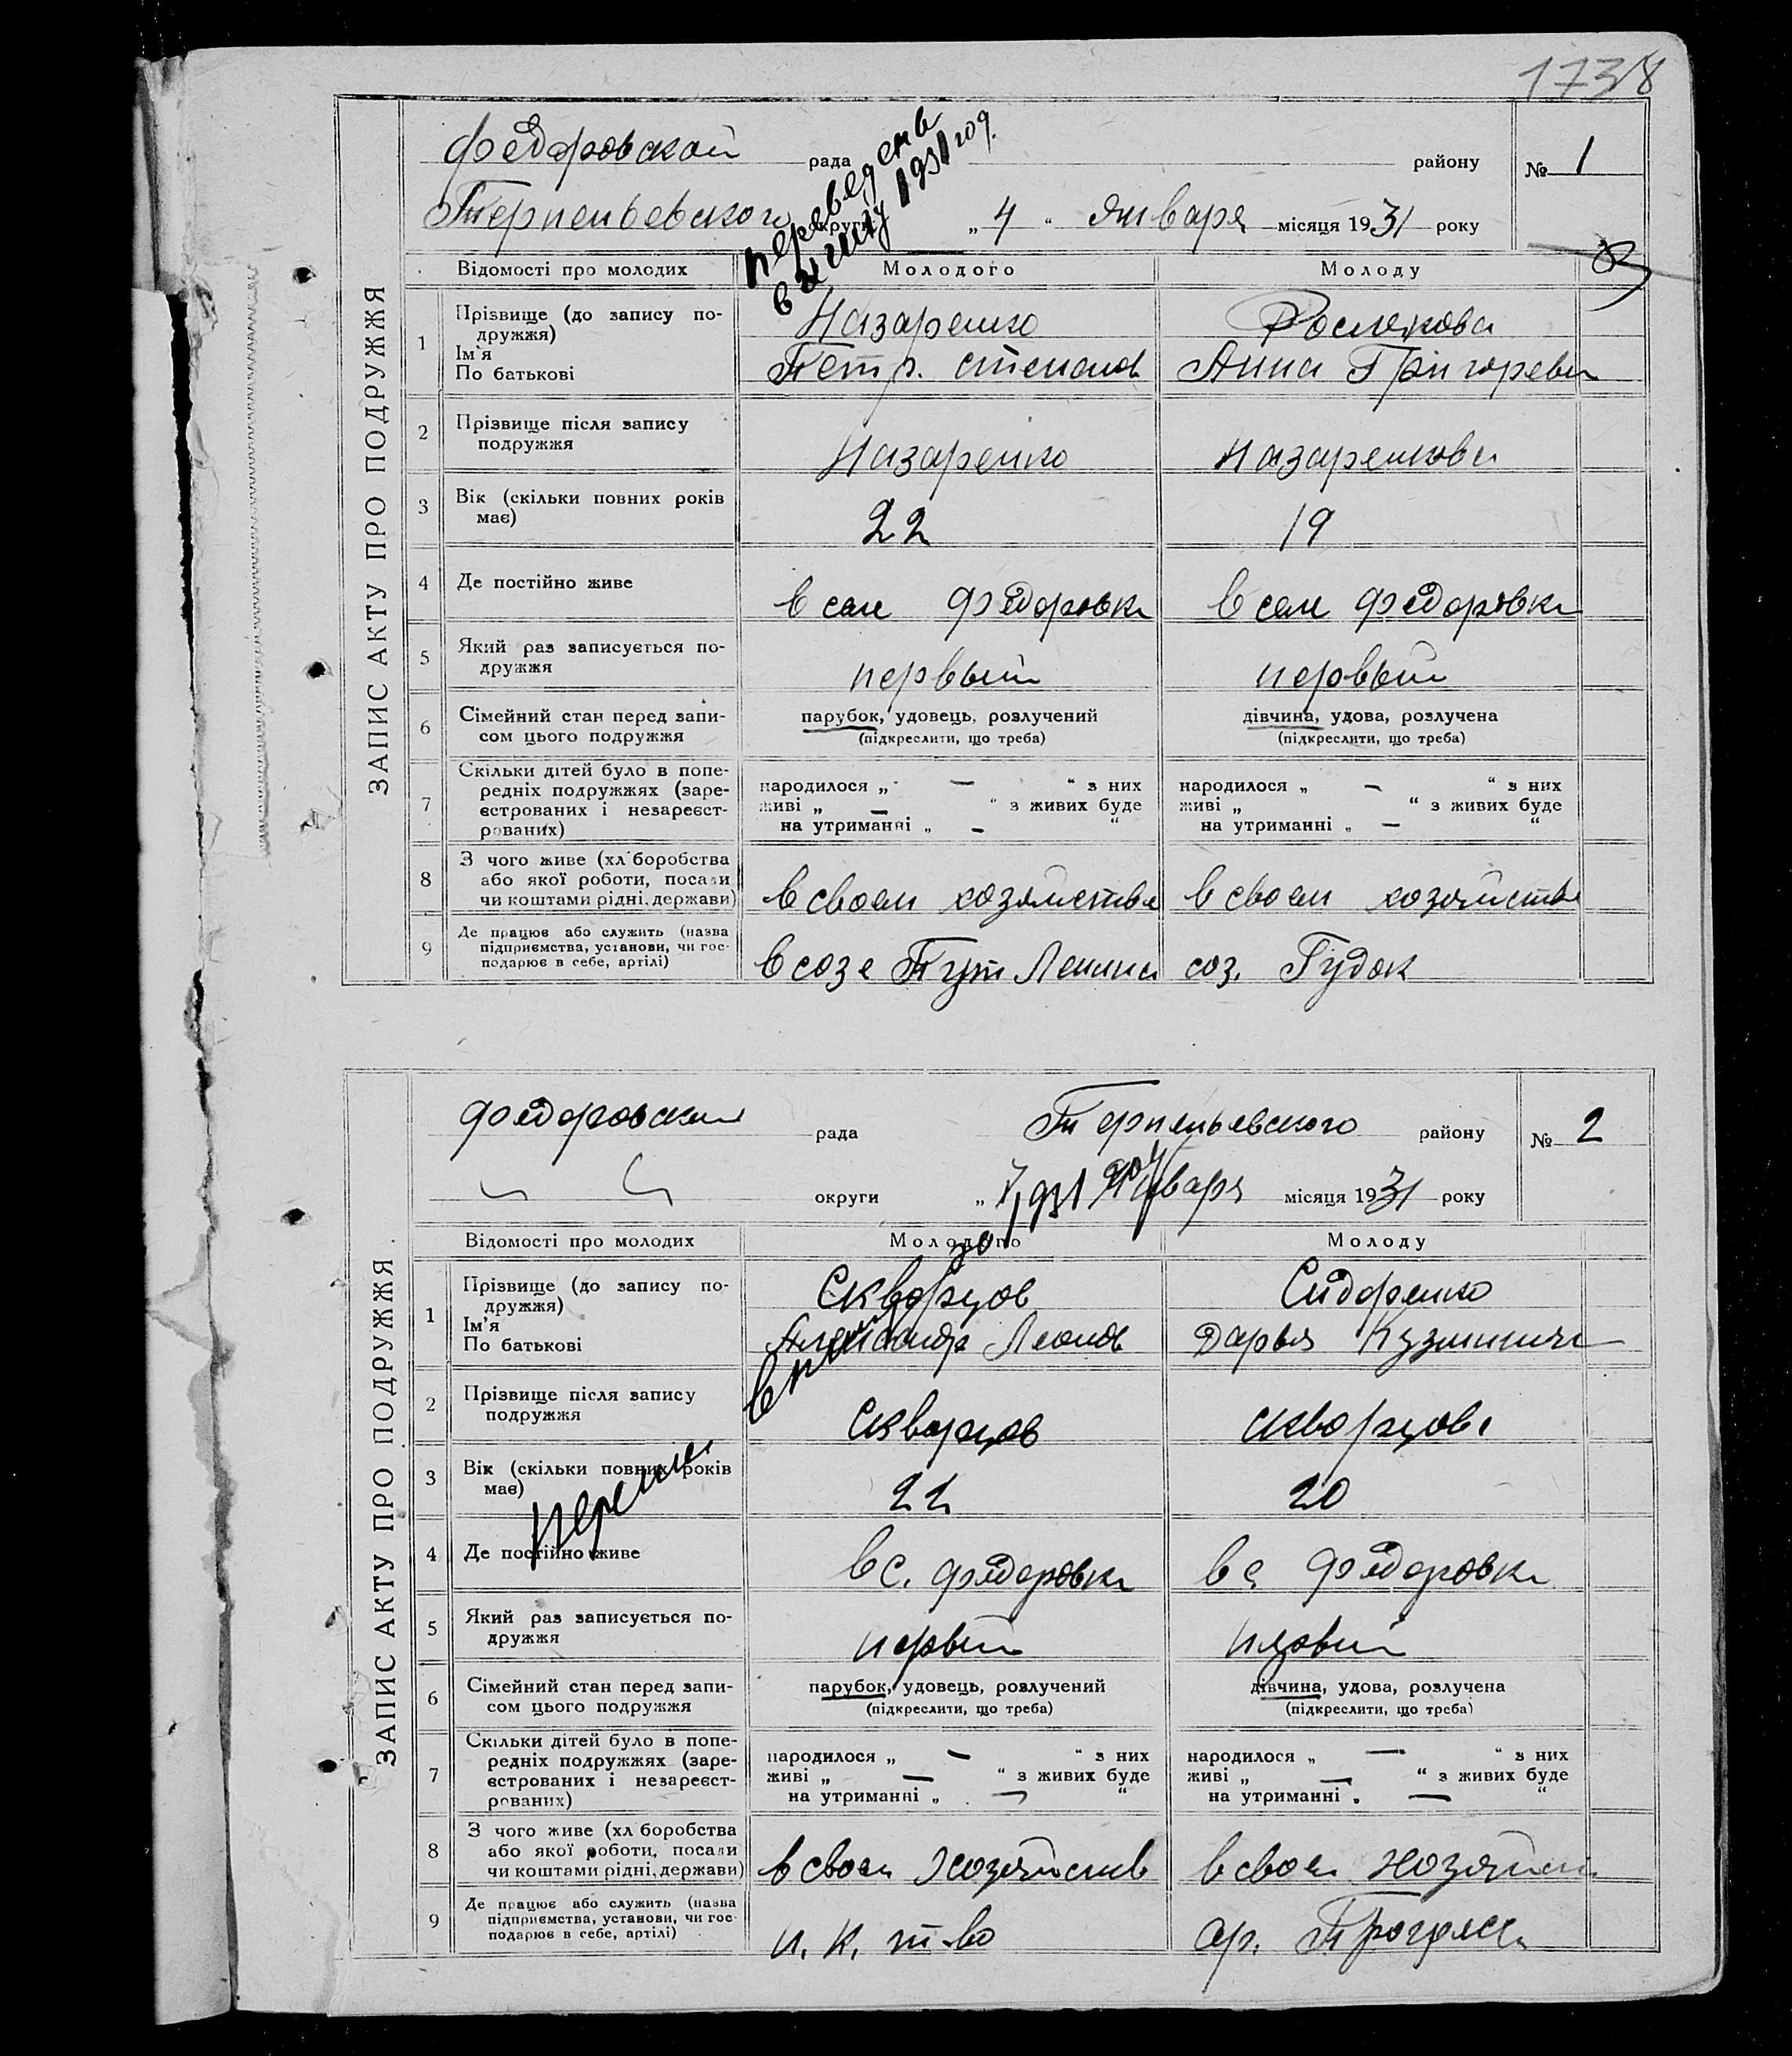 1738
ЗАПИС АКТУ ПРО ПОДРУЖЖЯ
Федоровской рада району № 1
Терпеньевского округи „ 4 “ Января місяця 1931 року
переведень
в книгу 1931 год.
Відомості про молодих Молодого Молоду
1 Прізвище (до запису по-
дружжя) Назаренко Рослекова
Ім'я
По батькові Петр. степанов Анна Григорева
2 Прізвище після запису
подружжя Назаренко Назаренкова
3 Вік (скільки повних років
має) 22 19
4 Де постійно живе в сели Федоровки в сели Федоровки
5 Який раз записується по-
дружжя первый первый
6 Сімейний стан перед запи-
сом цього подружжя парубок, удовець, розлучений дівчина, удова, розлучена
(підкреслити, що треба) (підкреслити, що треба)
7 Скільки дітей було в попе-
редніх подружжях (заре-
єстрованих і незареєст-
рованих) народилося „ — “ з них народилося „ — “ з них
живі „ — “ з живих буде живі „ “ з живих буде
на утриманні „ — “ на утриманні „ — “
8 З чого живе (хліборобства
або якої роботи, посади
чи коштами рідні, держави) в своем хозяйстве в своем хозяйстве
9 Де працює або служить (назва
підприємства, установи, чи гос-
подарює в себе, артілі) в созе Пут Ленина соз. Гудок
ЗАПИС АКТУ ПРО ПОДРУЖЖЯ
Федоровской рада Терпеньевского району № 2
округи „ 7 Января місяця 1931 року
1931 год
Відомості про молодих Молодого Молоду
1 Прізвище (до запису по-
дружжя) Скворцов Сидоренко
Ім'я
По батькові Александр Леонов Дарья Кузминична
2 Прізвище після запису
подружжя Скворцов скворцова
3 Вік (скільки повних років
має) 22 20
4 Де постійно живе в с. Федоровки в с Федоровки
5 Який раз записується по-
дружжя первый первый
6 Сімейний стан перед запи-
сом цього подружжя парубок, удовець, розлучений дівчина, удова, розлучена
(підкреслити, що треба) (підкреслити, що треба)
7 Скільки дітей було в попе-
редніх подружжях (заре-
єстрованих і незареєст-
рованих) народилося „ — “ з них народилося „ — “ з них
живі „ — “ з живих буде живі „ — “ з живих буде
на утриманні „ — “ на утриманні „ — “
8 З чого живе (хліборобства
або якої роботи, посади
чи коштами рідні, держави) в своем Хозяйстве в своем Хозяйстве
9 Де працює або служить (назва
підприємства, установи, чи гос-
подарює в себе, артілі) п. к. т-во ар. Прогресс